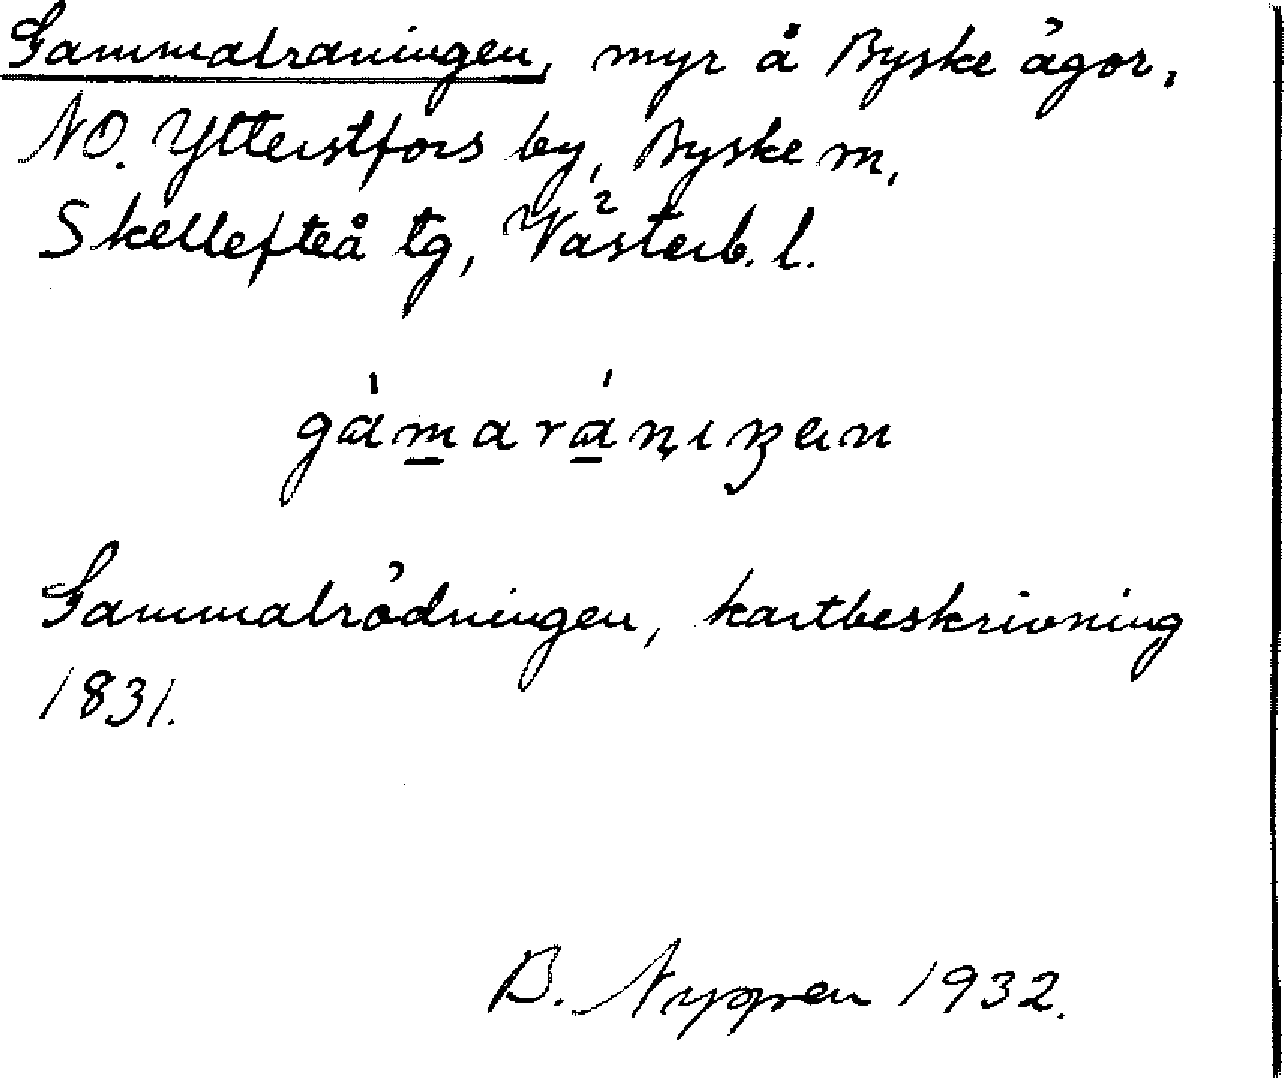 Gammalraningen, myr å Byske ägor,
NO. Ytterstfors by, Byske sn,
Skellefteå tg, Västerb. l.
gàmaránıŋen
Gammalrödningen, kartbeskrivning
1831.
B. 1932.